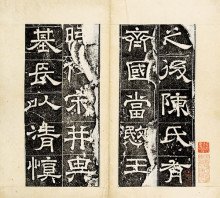 之後陳氏有
齊國當愍王
時伐宋并
基長以清慎